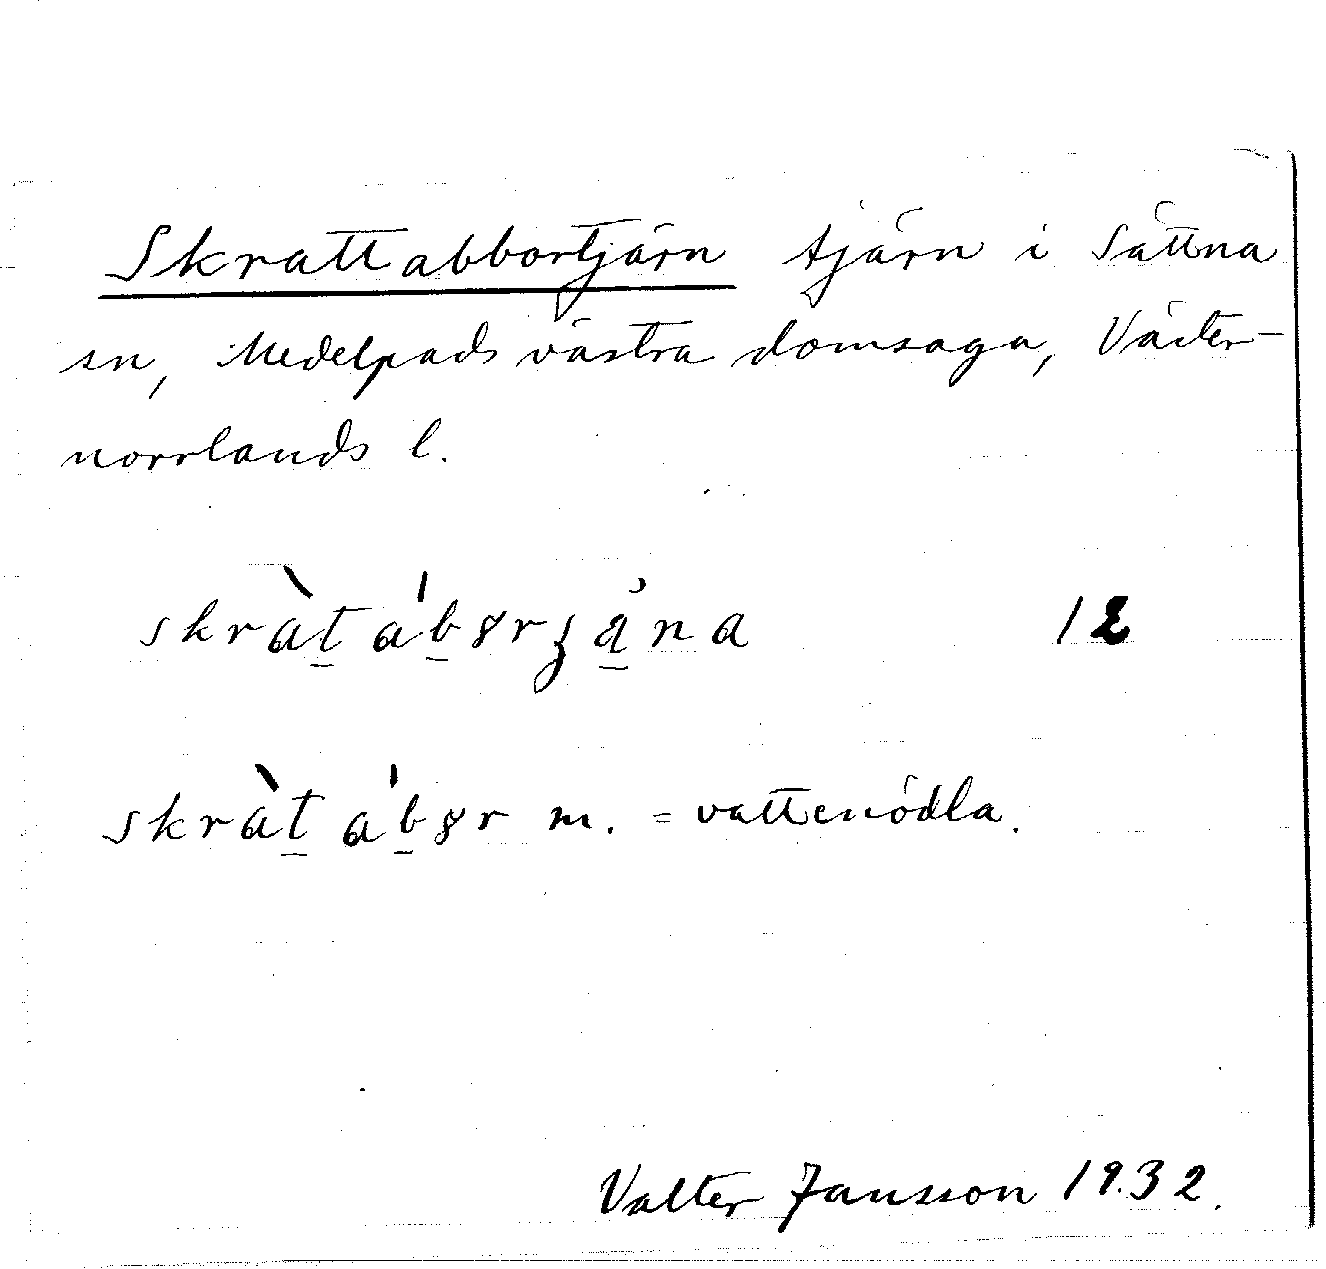 Skrattabbortjärn tjärn i Sättna
sn, Medelpads västra domsaga, Väster-
norrlands l.
skràt ábȣrʒä́na 12
skràt ábȣr m. = vattenödla.
Valter Jansson 1932.